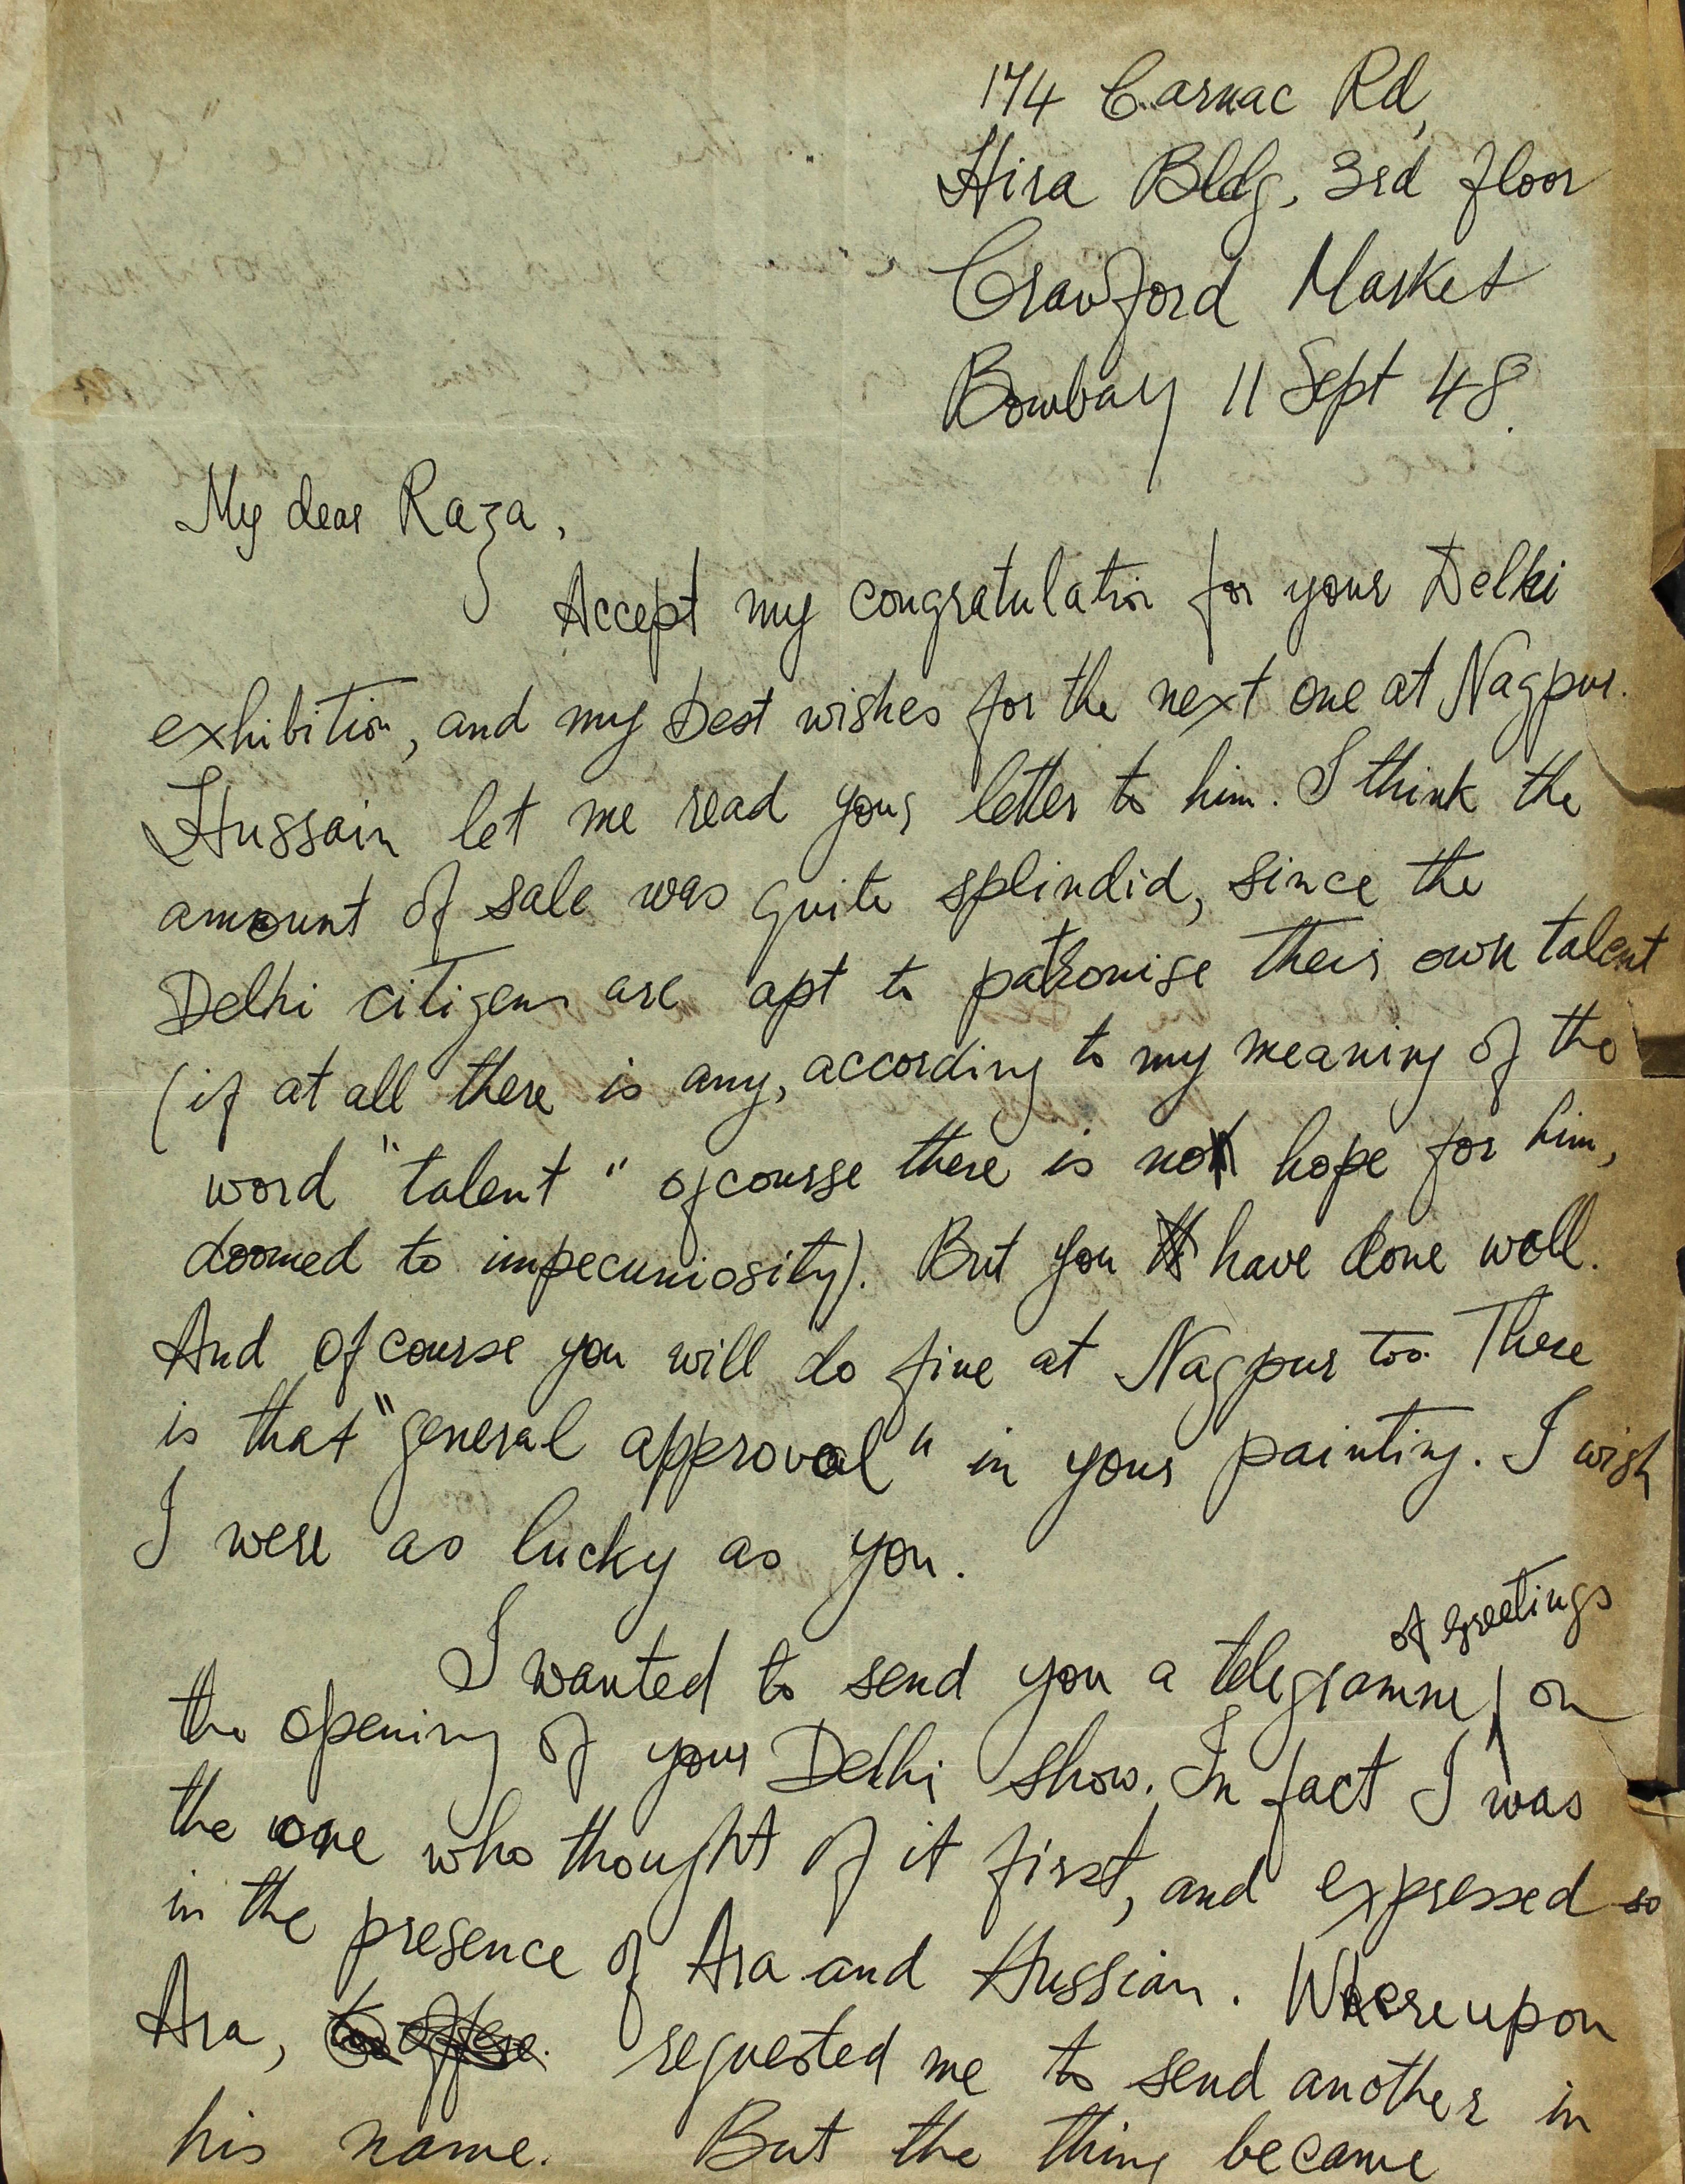 174 Carnac Rd,
Hira Bldg, 3rd floor
Crawford Market
Bombay 11 Sept 48.
My dear Raza,
Accept my congratulation for your Delhi
exhibition, and my best wishes for the next one at Nagpur.
Hussain let me read your letter to him. I think the
amount of sale was quite splindid, since the
Delhi citizens are apt to patronise their own talent
(if at all there is any, according to my meaning of the
word "talent" ofcourse there is no hope for him,
doomed to impecuniosity). But you have done well.
And ofcourse you will do fine at Nagpur too. There
is that "general approval" in your painting. I wish
I were as lucky as you.
of greetings
I wanted to send you a telegramme on
the opening of your Delhi show. In fact I was
the one who thought of it first, and expressed so
in the presence of Ara and Hussian. Whereupon
Ara, requested me to send another in
his name. But the thing became